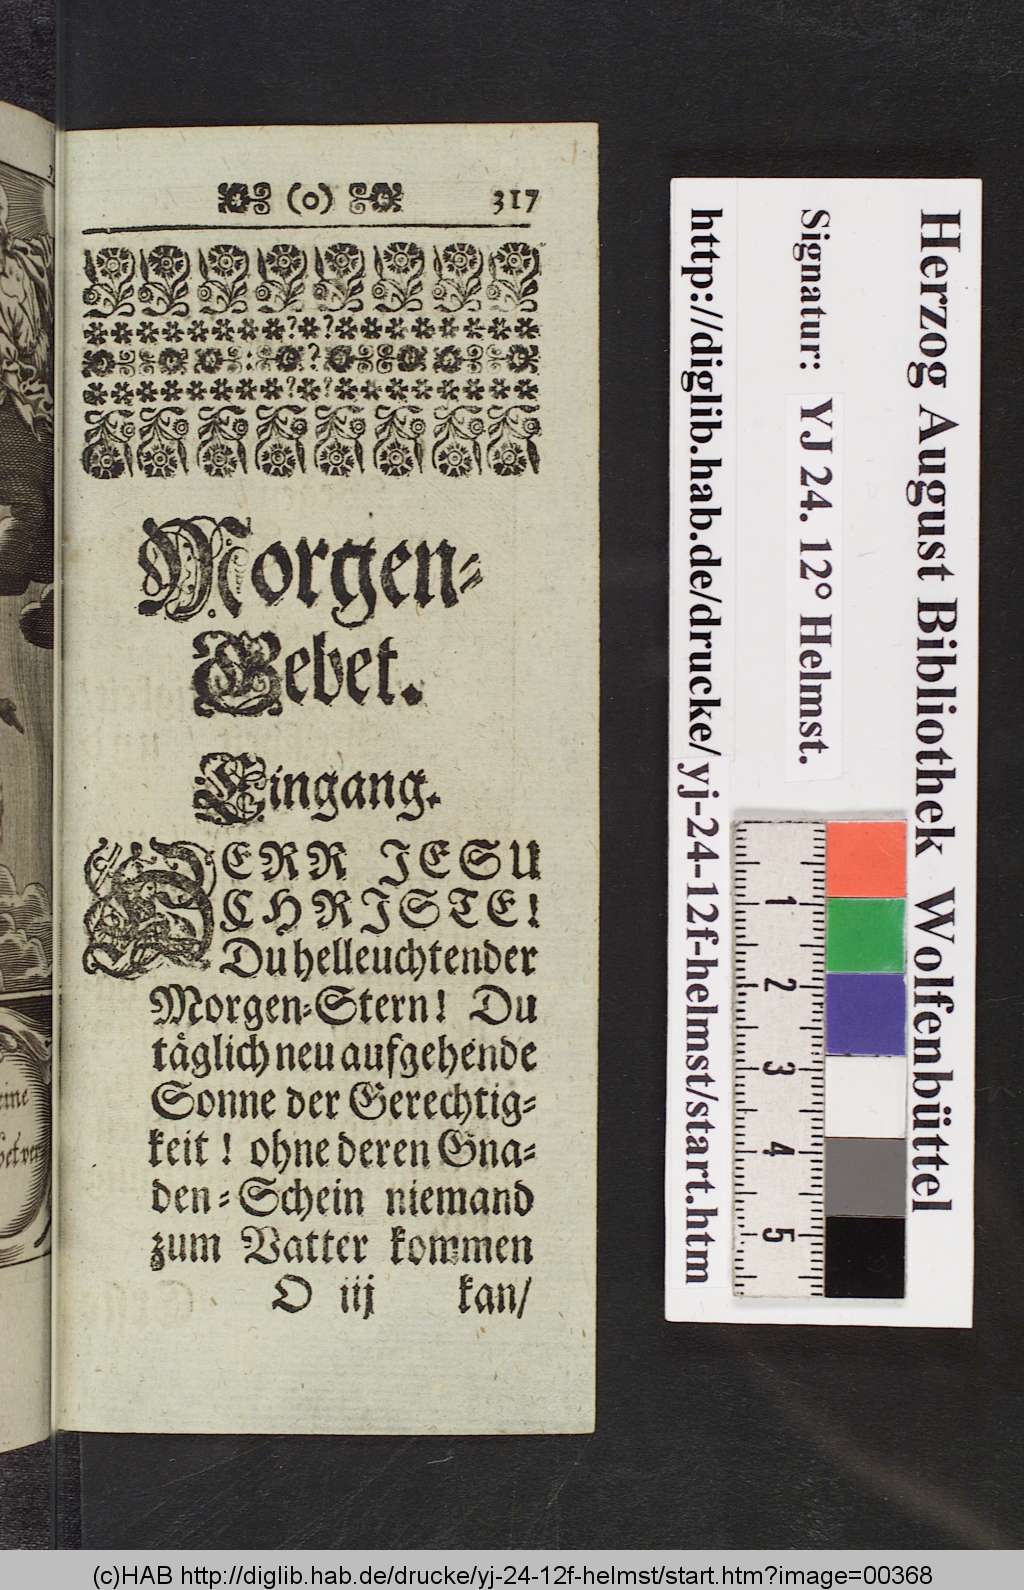 (o) 317
Morgen-
Gebet.
Eingang.
HERR JESU
CHRISTE!
Du helleuchtender
Morgen-Stern! Du
täglich neu aufgehende
Sonne der Gerechtig-
keit! ohne deren Gna-
den-Schein niemand
zum Vatter kommen
O iij kan/
eine
Herzog August Bibliothek Wolfenbüttel
Signatur: YJ 24. 12° Helmst.
http://diglib.hab.de/drucke/yj-24-12f-helmst/start.htm
1
2
3
4
5
(c)HAB http://diglib.hab.de/drucke/yj-24-12f-helmst/start.htm?image=00368